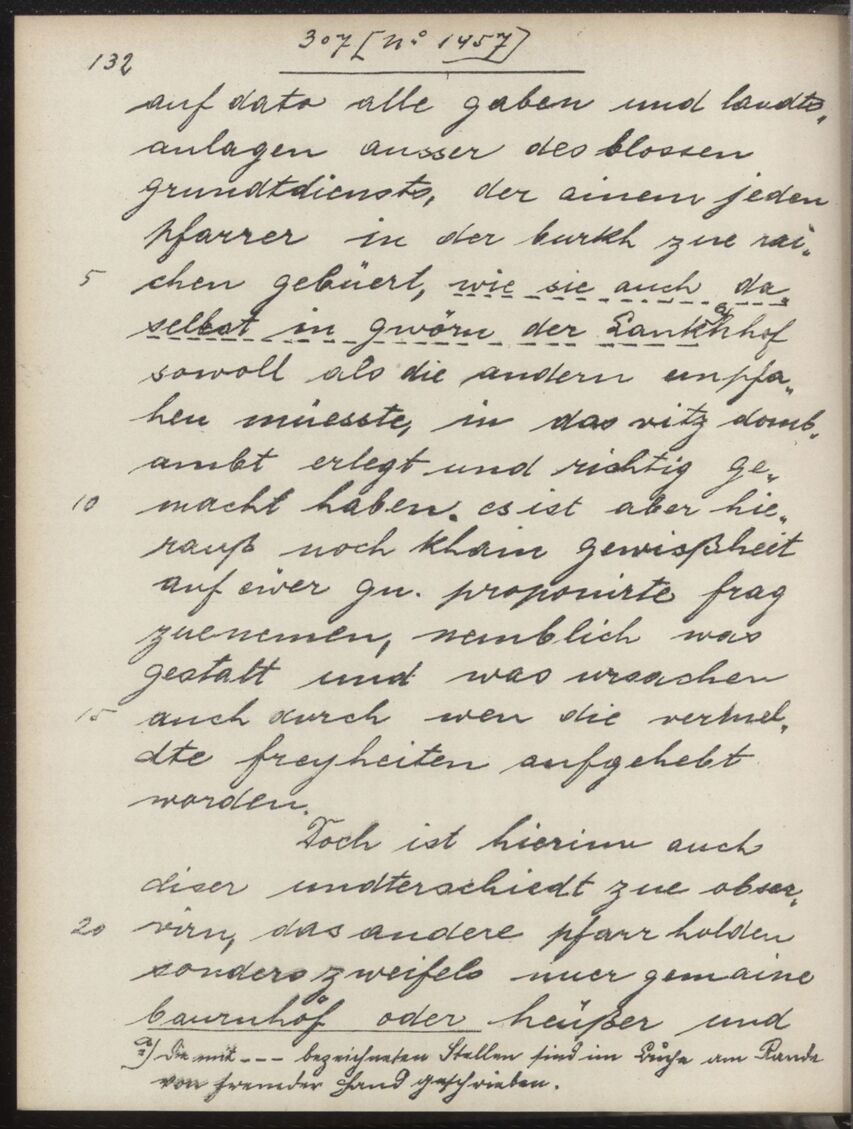 307 [No 1457]
132
auf dato alle gaben und landts„
anlagen ausser des blossen
grundtdiensts, der ainem jeden
pfarrer in der burkh zue rai„
5 chen gebüert, wie sie auch da„
selbst in gwörn der Lankhhof a)
sowoll als die andern empfa„
hen müesste, in das vitz domb„
ambt erlegt und richtig ge„
10 macht haben. es ist aber hie„
rauß noch khain gewißheit
auf ewer gn. proponirte frag
zuenemen, nemblich was
gestalt und was ursachen
15 auch durch wen die vermel„
dte freyheiten aufgehebt
worden.
Doch ist hierinn auch
diser undterschiedt zue obser„
20 virn, das andere pfarr holden
sonders zweifels nuer gemaine
baurnhöf oder heüßer und
a) Die mit --- bezeichneten Stellen sind im Buche am Rande
von fremder Hand geschrieben.